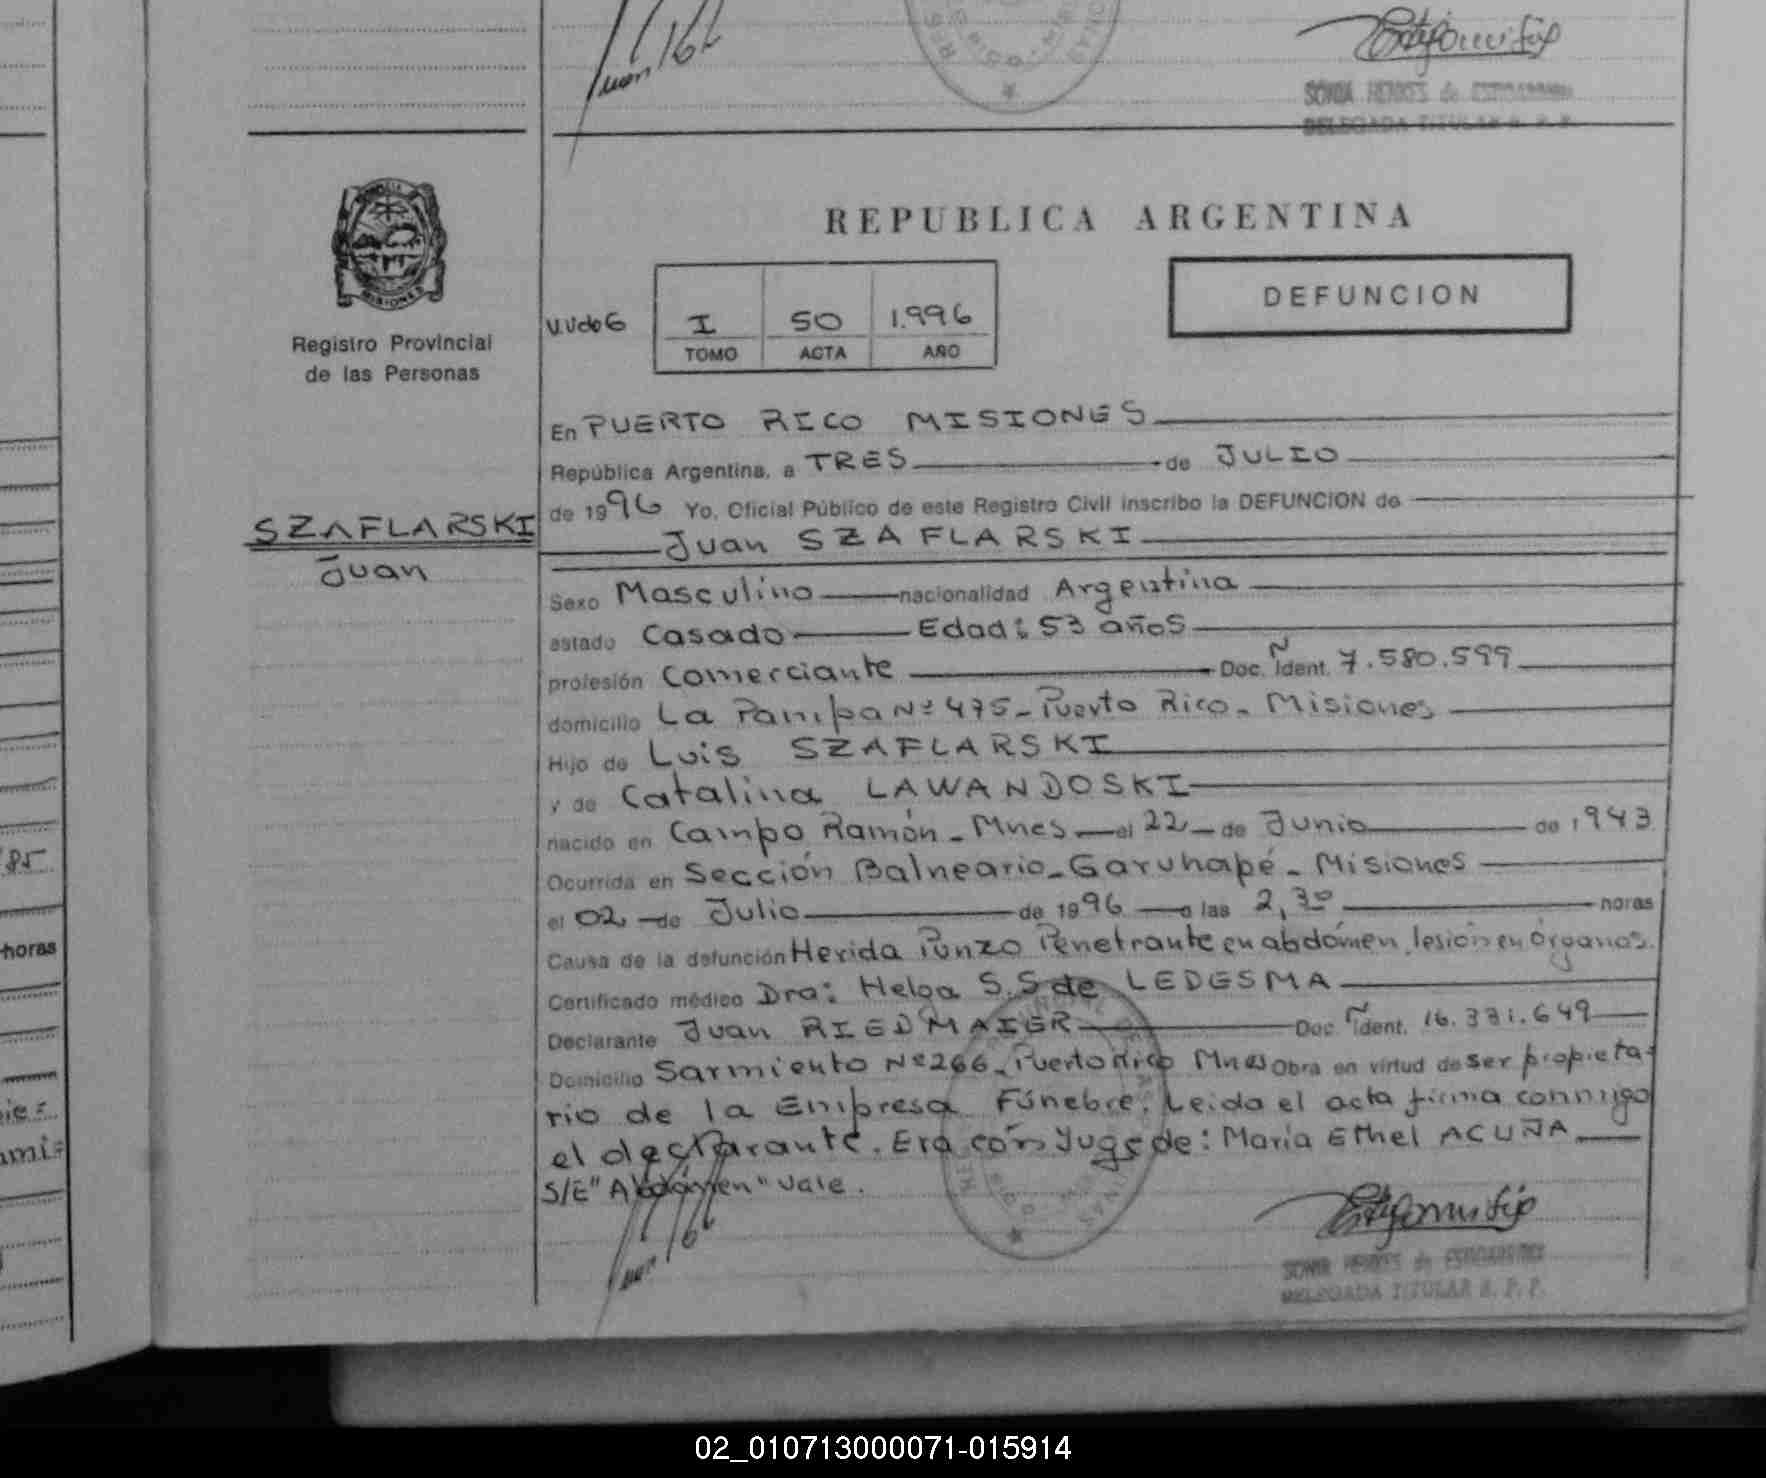 Juan
SONIA
DELEGADA TITULAR R. P. P.
MISIONES
Registro Provincial
de las Personas
REPUBLICA ARGENTINA
DEFUNCION
I 50 1.996
TOMO ACTA AÑO
En PUERTO RICO MISIONES
República Argentina, a TRES de JULIO
de 1996 Yo, Oficial Público de este Registro Civil inscribo la DEFUNCION de
SZAFLARSKI
Juan
Juan SZAFLARSKI
Sexo Masculino nacionalidad Argentina
estado Casado Edad: 53 años
profesión Comerciante Doc. Ident. 7.580.599
domicilio La Pampa Nº 475_ Puerto Rico_ Misiones
Hijo de Luis SZAFLARSKI
y de Catalina LAWANDOSKI
nacido en Campo Ramón_ Mnes el 22 de Junio de 1943
Ocurrida en Sección Balneario_Garuhapé_ Misiones
el 02 de Julio de 1996 a las 2,30 horas
Causa de la defunción Herida Punzo Penetrante en abdómen, lesión en órganos.
Certificado médico Dra: Helga S.S de LEDESMA
Declarante Juan RIEDMAIER Doc. Ident. 16.331.649
Domicilio Sarmiento Nº 266_ Puerto Rico Mnes Obra en virtud de ser propieta-
rio de la Empresa Fúnebre. Leida el acta firma conmigo
el declarante. Era cónyuge de: Maria Ethel ACUÑA
S/E "Abdómen" vale.
DELEGADA TITULAR R. P. P.
85
horas
02_010713000071-015914